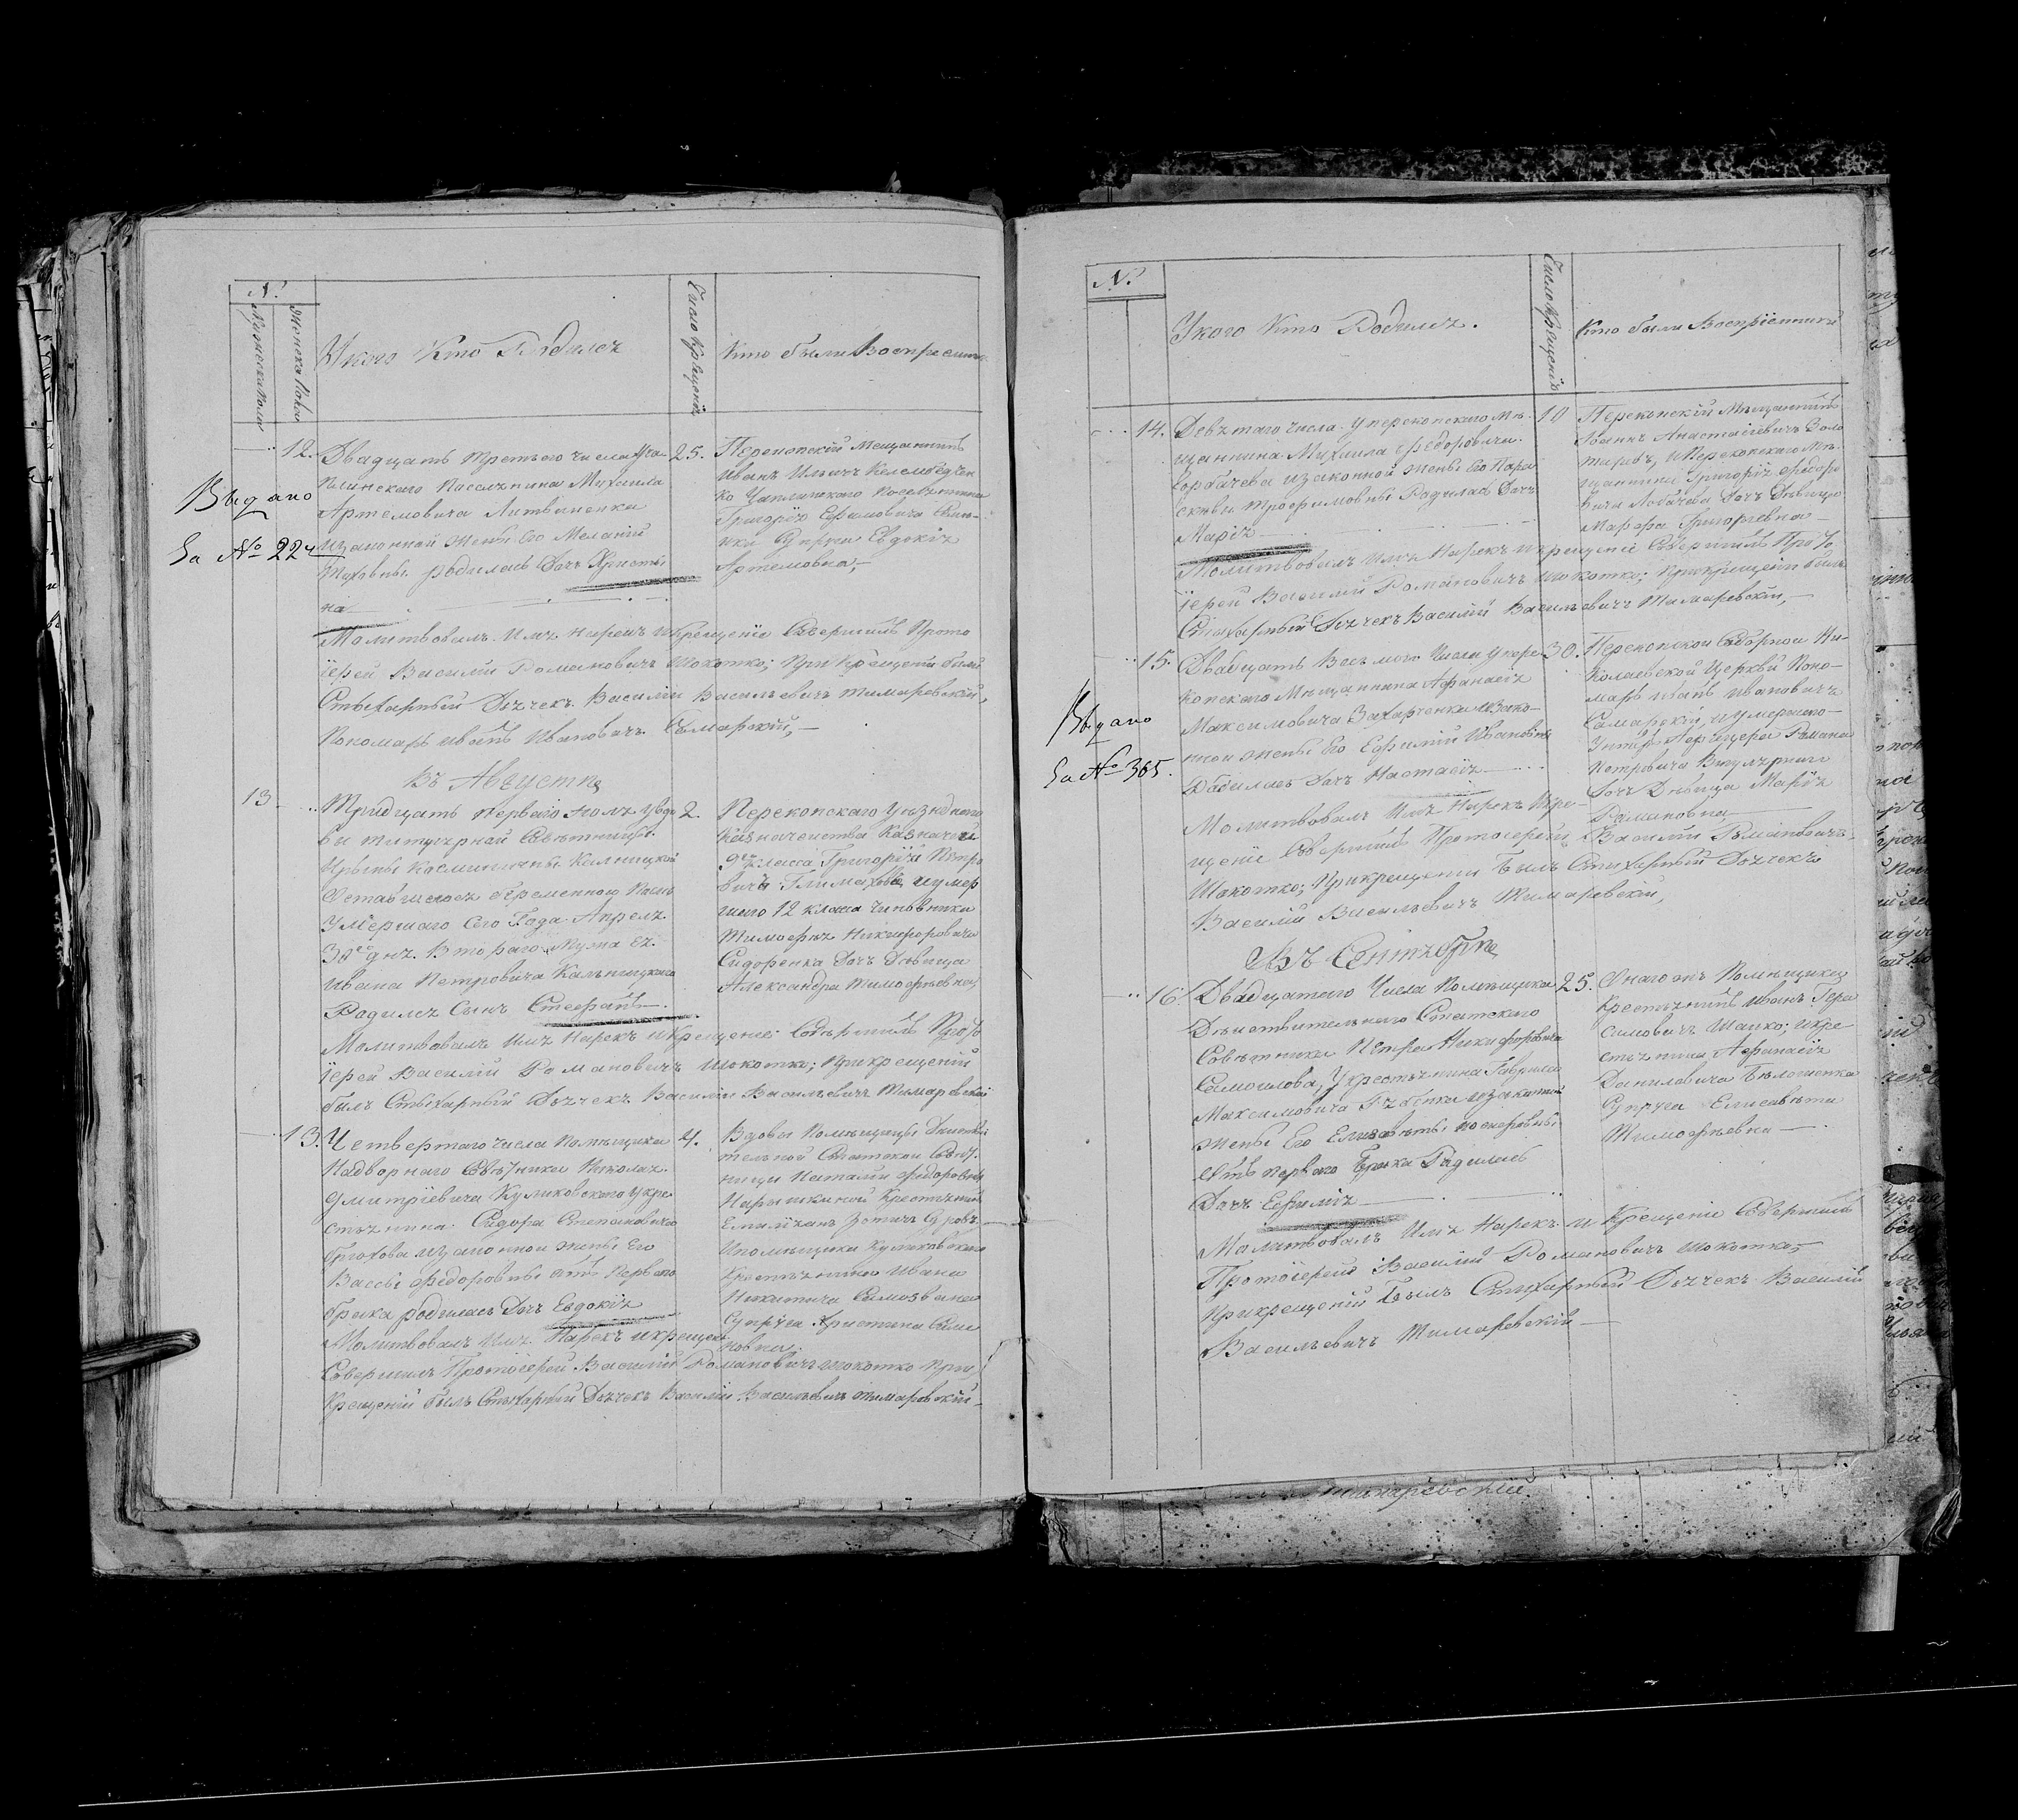 №.
Мужеска пола
Женска пола
У кого кто Родился
Число крещенія
Кто были Воспріемни
12.
Двадцать третьяго числа у Ча-
плинскаго поселянина Михаила
Артемовича Литвиненка
и законной жены его Меланіи
родилась дочь Христи
на
25.
Перекопскій мещанинъ
Иванъ Ильичъ
ко Чаплинскаго поселянина
Григорія Ефимовича
супруга Евдокія
Артемовна,
Выдано
За № 224
Молитвовалъ имя нарекъ и крещеніе совершилъ Прото
іерей Василій Романовичъ Шокотко; при крещеніи были
Стихарный Дьячекъ Василій Васильевичъ Тимаревскій,
Пономарь Иванъ Ивановичъ Самарскій,
Въ Августѣ
13
Тридцать перваго Іюля у вдо
вы титулярной Совѣтницы
Оставшейся беременною послѣ
умершаго сего года Апрѣля
30го дня втораго мужа ея
Ивана Петровича Кальницкаго
Родился сынъ Стефанъ
2.
Перекопскаго уѣзднаго
Казначейства Казначей
9 класса Григорій Петро
вичъ и умер
шаго 12 класса чиновника
Тимофея Никифоровича
Сидоренка дочь дѣвица
Александра Тимофѣевна;
Молитвовалъ имя нарекъ и крещеніе совершилъ Прото
іерей Василій Романовичъ Шокотко; при крещеніи
былъ Стихарный Дьячекъ Василій Васильевичъ Тимаревскій
13.
Четвертаго числа помѣщика
Надворнаго Совѣтника Николая
Дмитріевича Куликовскаго у кре
стьянина Сидора Степановича
и законной жены его
Вассы Федоровны отъ перваго
брака родилась дочь Евдокія
4.
Вдовы помѣщицы Дѣйстви
тельной Статской Совѣт
ницы Наталіи Федоровны
Нарышкиной крестьянинъ
и помѣщика Куликовскаго
крестьянина Ивана
Никитича
супруга Христина Сами
ловна.
Молитвовалъ имя нарекъ и крещеніе
Совершилъ Протоіерей Василій Романовичъ Шокотко при
крещеніи былъ Стихарный Дьячекъ Василій Васильевичъ Тимаревскій
№.
У кого кто Родился.
Число крещенія
Кто были Воспріемники
14.
Девятаго числа у перекопскаго мѣ-
щанина Михаила Федоровича
Горбачева и законной жены его Пара
скевы Трофимовны Родилась дочь
Марія
10
Перекопскій мѣщанинъ
Іоаннъ Анастасіевичъ Золо
таревъ, и Перекопскаго мѣ-
щанина Григорія Федоро
вича дочь дѣвица
Марфа Григорьевна
Молитвовалъ имя нарекъ и крещеніе совершилъ Прото
іерей Василій Романовичъ Шокотко; при крещеніи былъ
Стихарный Дьячекъ Василій Васильевичъ Тимаревскій,
15.
Двадцать восьмого числа у пере-
копскаго мѣщанина Афанасія
Максимовича Захарченка и зако-
нной жены его Ефиміи Ивановны
родилась дочь Настасія
30.
Перекопской соборной Ни-
колаевской церкви поно-
марь Иванъ Ивановичъ
Самарскій, и умершаго
Унтеръ Офицера Романа
Петровича
дочь дѣвица Марія
Романовна
Выдано
За № 365.
Молитвовалъ имя нарекъ и кре-
щеніе совершилъ Протоіерей Василій Романовичъ
Шокотко; при крещеніи былъ Стихарный Дьячекъ
Василій Васильевичъ Тимаревскій,
Въ Сентябрѣ
16.
Двадцатаго числа помѣщика
Дѣйствительнаго Статскаго
Совѣтника Петра Никифоровича
Самойлова, у крестьянина Гаврила
Максимовича и законной
жены его Елисаветы
отъ перваго брака родилась
дочь Ефимія
25.
Онаго жъ помѣщика
крестьянинъ Иванъ Гера
симовичъ и кре-
стьянина Афанасія
Даниловича
супруга Елисавета
Тимофѣевна
Молитвовалъ имя нарекъ и крещеніе совершилъ
Протоіерей Василій Романовичъ Шокотко;
при крещеніи былъ Стихарный Дьячекъ Василій
Васильевичъ Тимаревскій